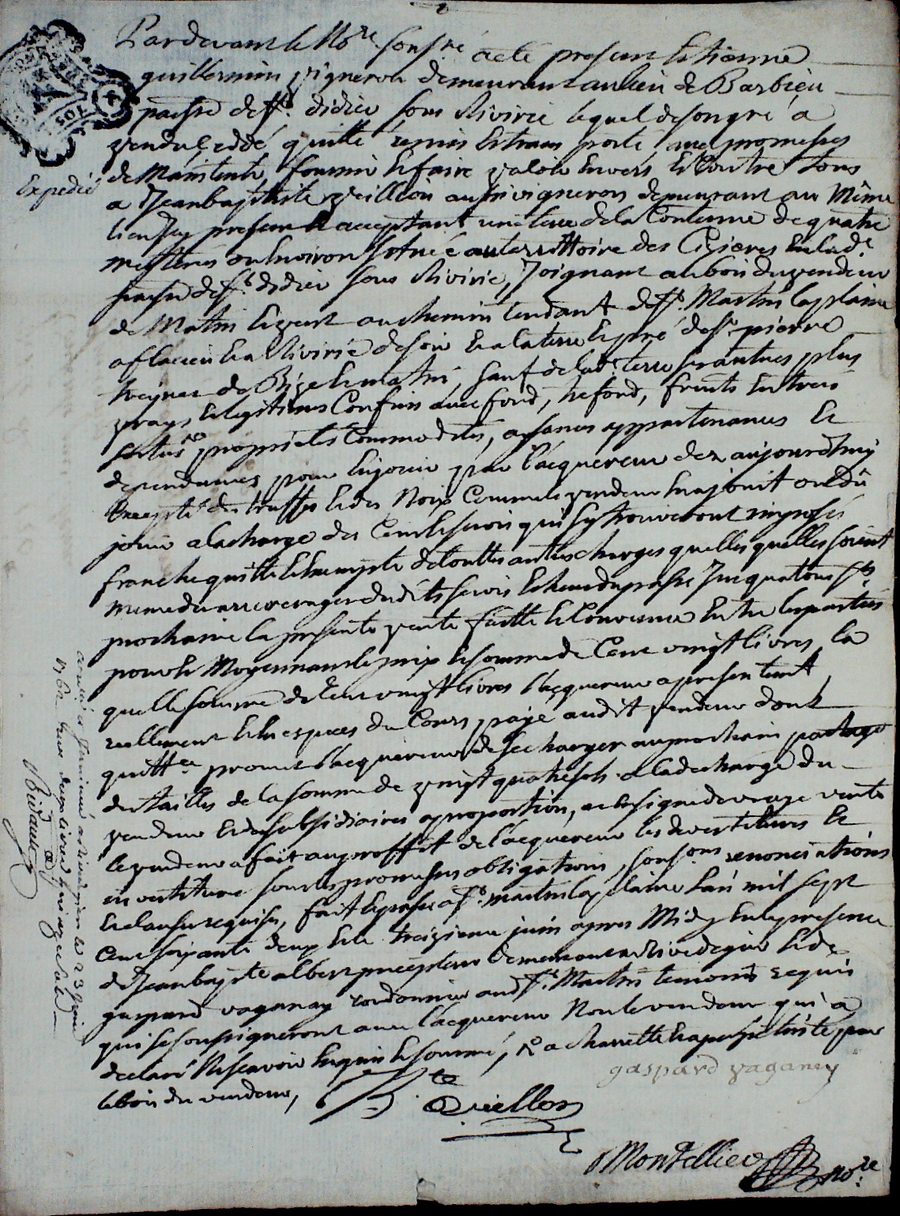 Pardevant le No.re soussé acté present Estienne
guillermin vigneron demeurant au lieu de Barbieu
paroisse de St. didier sous Rivirie lequel de son gré a
vendu, cédé, quitté remis et transporté avec promesses
de Maintenir, fournir et faire valoir envers et Contre tous
Expedié
a Jean baptiste veillon aussi vigneron demeurant au Même
lieu Icy present et acceptant une terre de la Contenue de quatre
mestères ou Environ située au territoire des Cizieres en lad.e
paroisse de St. didier sous Rivirie, Joignant au bois du vendeur
de Matin et vent au chemin tendant de St. Martin la plaine
a flacieu et a Rivirie de soir et a la terre et pré de Sr. pierre
de Bize et matin, sauf de lad. terre ses autres plus
vrays et legitimes Confins avec fond, trefond, fruits Entrées
sorties, proprietés Commodités, aisances appartenances et
dependances, pour En jouir par l'acquereur dez aujourd'huy
Excepté des truffes et des Noix Comme le vendeur En a jouit ou dû
jouir a la charge des Cens et servis qui s'y trouveront imposés
franche quitte et Exempte de touttes autres charges quelles quelles soient
Meme des arrerages desdits servis Echeus du passé Jusqu'a la St.
prochaine la presente vente faitte et Convenue Entre les parties
pour et Moyennant le prix et somme de Cent vingt livres, la
quelle somme de Cent vingt livres l'acquereur a presentement
reellement et En especes du Cours payé audit vendeur dont
quitt.ce promet l'acquereur de se charger au prochain partage
des tailles de la somme de vingt quatre sols a la decharge du
vendeur et des subsidiaires a proportion, et En signe de vraye vente
le vendeur a fait au proffit de l'acquereur les devertitures et
investiture sous les promesses obligations, soumissions renonciations
et clauses requises, fait et passé a St. martin la plaine L'an mil sept
Cent soixante deux et le treizieme juin apres Midy En la presence
de Jean baptiste albert precepteur demeurant a Rivedegier et de
gaspard vaganay Cordonnier aud. St. Martin temoins requis
qui se sont signeront avec l'acquereur Non le vendeur qui a
declaré Ne sçavoir Enquis et sommé,
le bois du vendeur,
Controllé a Rivedegier le 23 juin
1762 Reçu
gaspard vaganay
J B.te Veillon
Montellier No.re